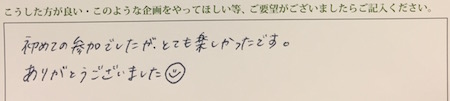 こうした方が良い・このような企画をやってほしい等、ご要望がございましたらご記入ください。
初めての参加でしたが、とても楽しかったです。
ありがとうございました☺